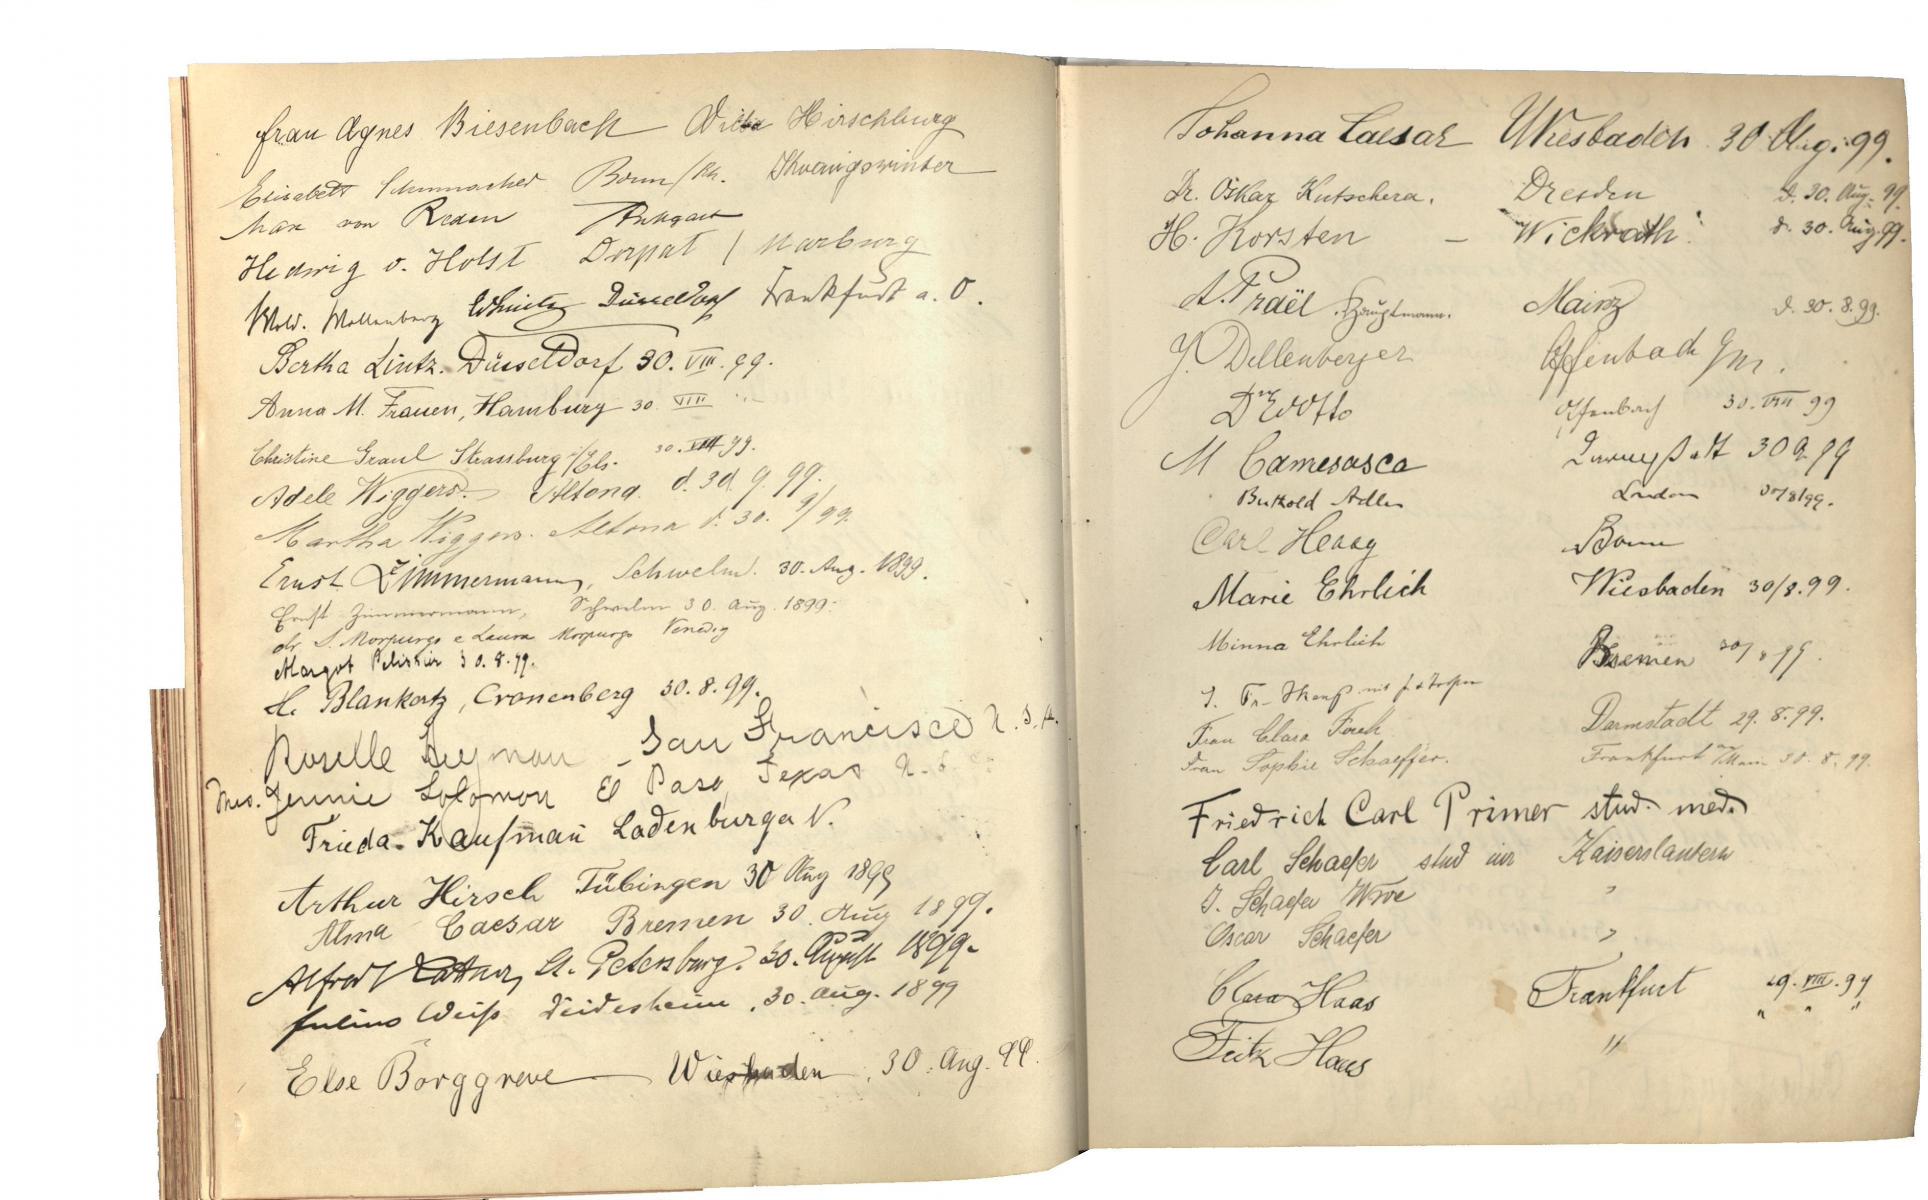 Frau Agnes Biesenbach Villa Hirschburg
Elisabeth Schumacher Bonn/Rh. Königswinter
Max von Reden Stuttgart
Hedwig v. Holst Dorpat / Marburg
Wold. Wollenberg Düsseldorf Frankfurt a. O.
Bertha Lintz. Düsseldorf 30. VIII. 99.
Anna M. Frauen, Hamburg 30 VIII
Christine Graul Strassburg i/Els. 30. VIII 99.
Adele Wiggers. Altona d. 30. 9. 99.
Martha Wiggers. Altona d. 30. 9/99.
Ernst Zimmermann, Schwelm. 30. Aug. 1899.
Ernst Zimmermann, Schwelm 30. Aug. 1899.
dr. S. Morpurgo e Laura Morpurgo Venedig
Margot 30.8.99.
H. Blankertz, Cronenberg 30. 8. 99.
Roselle San Francisco U.S.A.
Mrs. Jennie Solomon El Paso, Texas U.S.
Frieda Kaufmann Ladenburg a N.
Arthur Hirsch Tübingen 30 Aug 1899
Alma Caesar Bremen 30. Aug 1899.
Alfred St. Petersburg. 30. August 1899.
Julius Weiß Deidesheim, 30. Aug. 1899
Else Borggreve Wiesbaden, 30. Aug. 99.
Johanna Caesar Wiesbaden 30 Aug. 99.
Dr. Oskar Kutschera. Dresden d. 30. Aug. 99.
H. Korsten – Wickrath. d. 30. Aug. 99.
A. Praël, Hauptmann. Mainz d. 30. 8. 99.
J. Dellenberger Offenbach a/M.
Dr Otto Offenbach 30. VIII 99
M Camesasca 30 9 99
Berthold Adler London 30/8/99.
Carl Haag Bonn
Marie Ehrlich Wiesbaden 30/8. 99.
Minna Ehrlich Bremen 30/8 99.
Frau Clara Darmstadt 29. 8. 99.
Frau Sophie Schaeffer. Frankfurt a/Main 30. 8. 99.
Friedrich Carl Primer stud. med.
Carl Schaefer stud iur Kaiserslautern
J. Schaefer Wwe "
Oscar Schaefer "
Clara Haas Frankfurt 29. VIII. 99
Fritz Haas " " " "